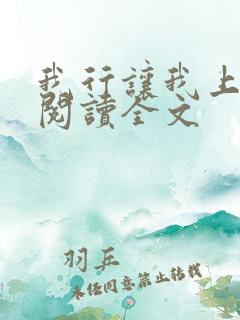 我行讓我上
閱讀全文
羽乒
未經同意禁止轉載